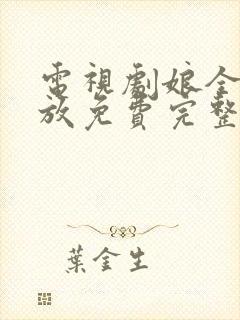 電視劇娘全
放免費完整
葉金生